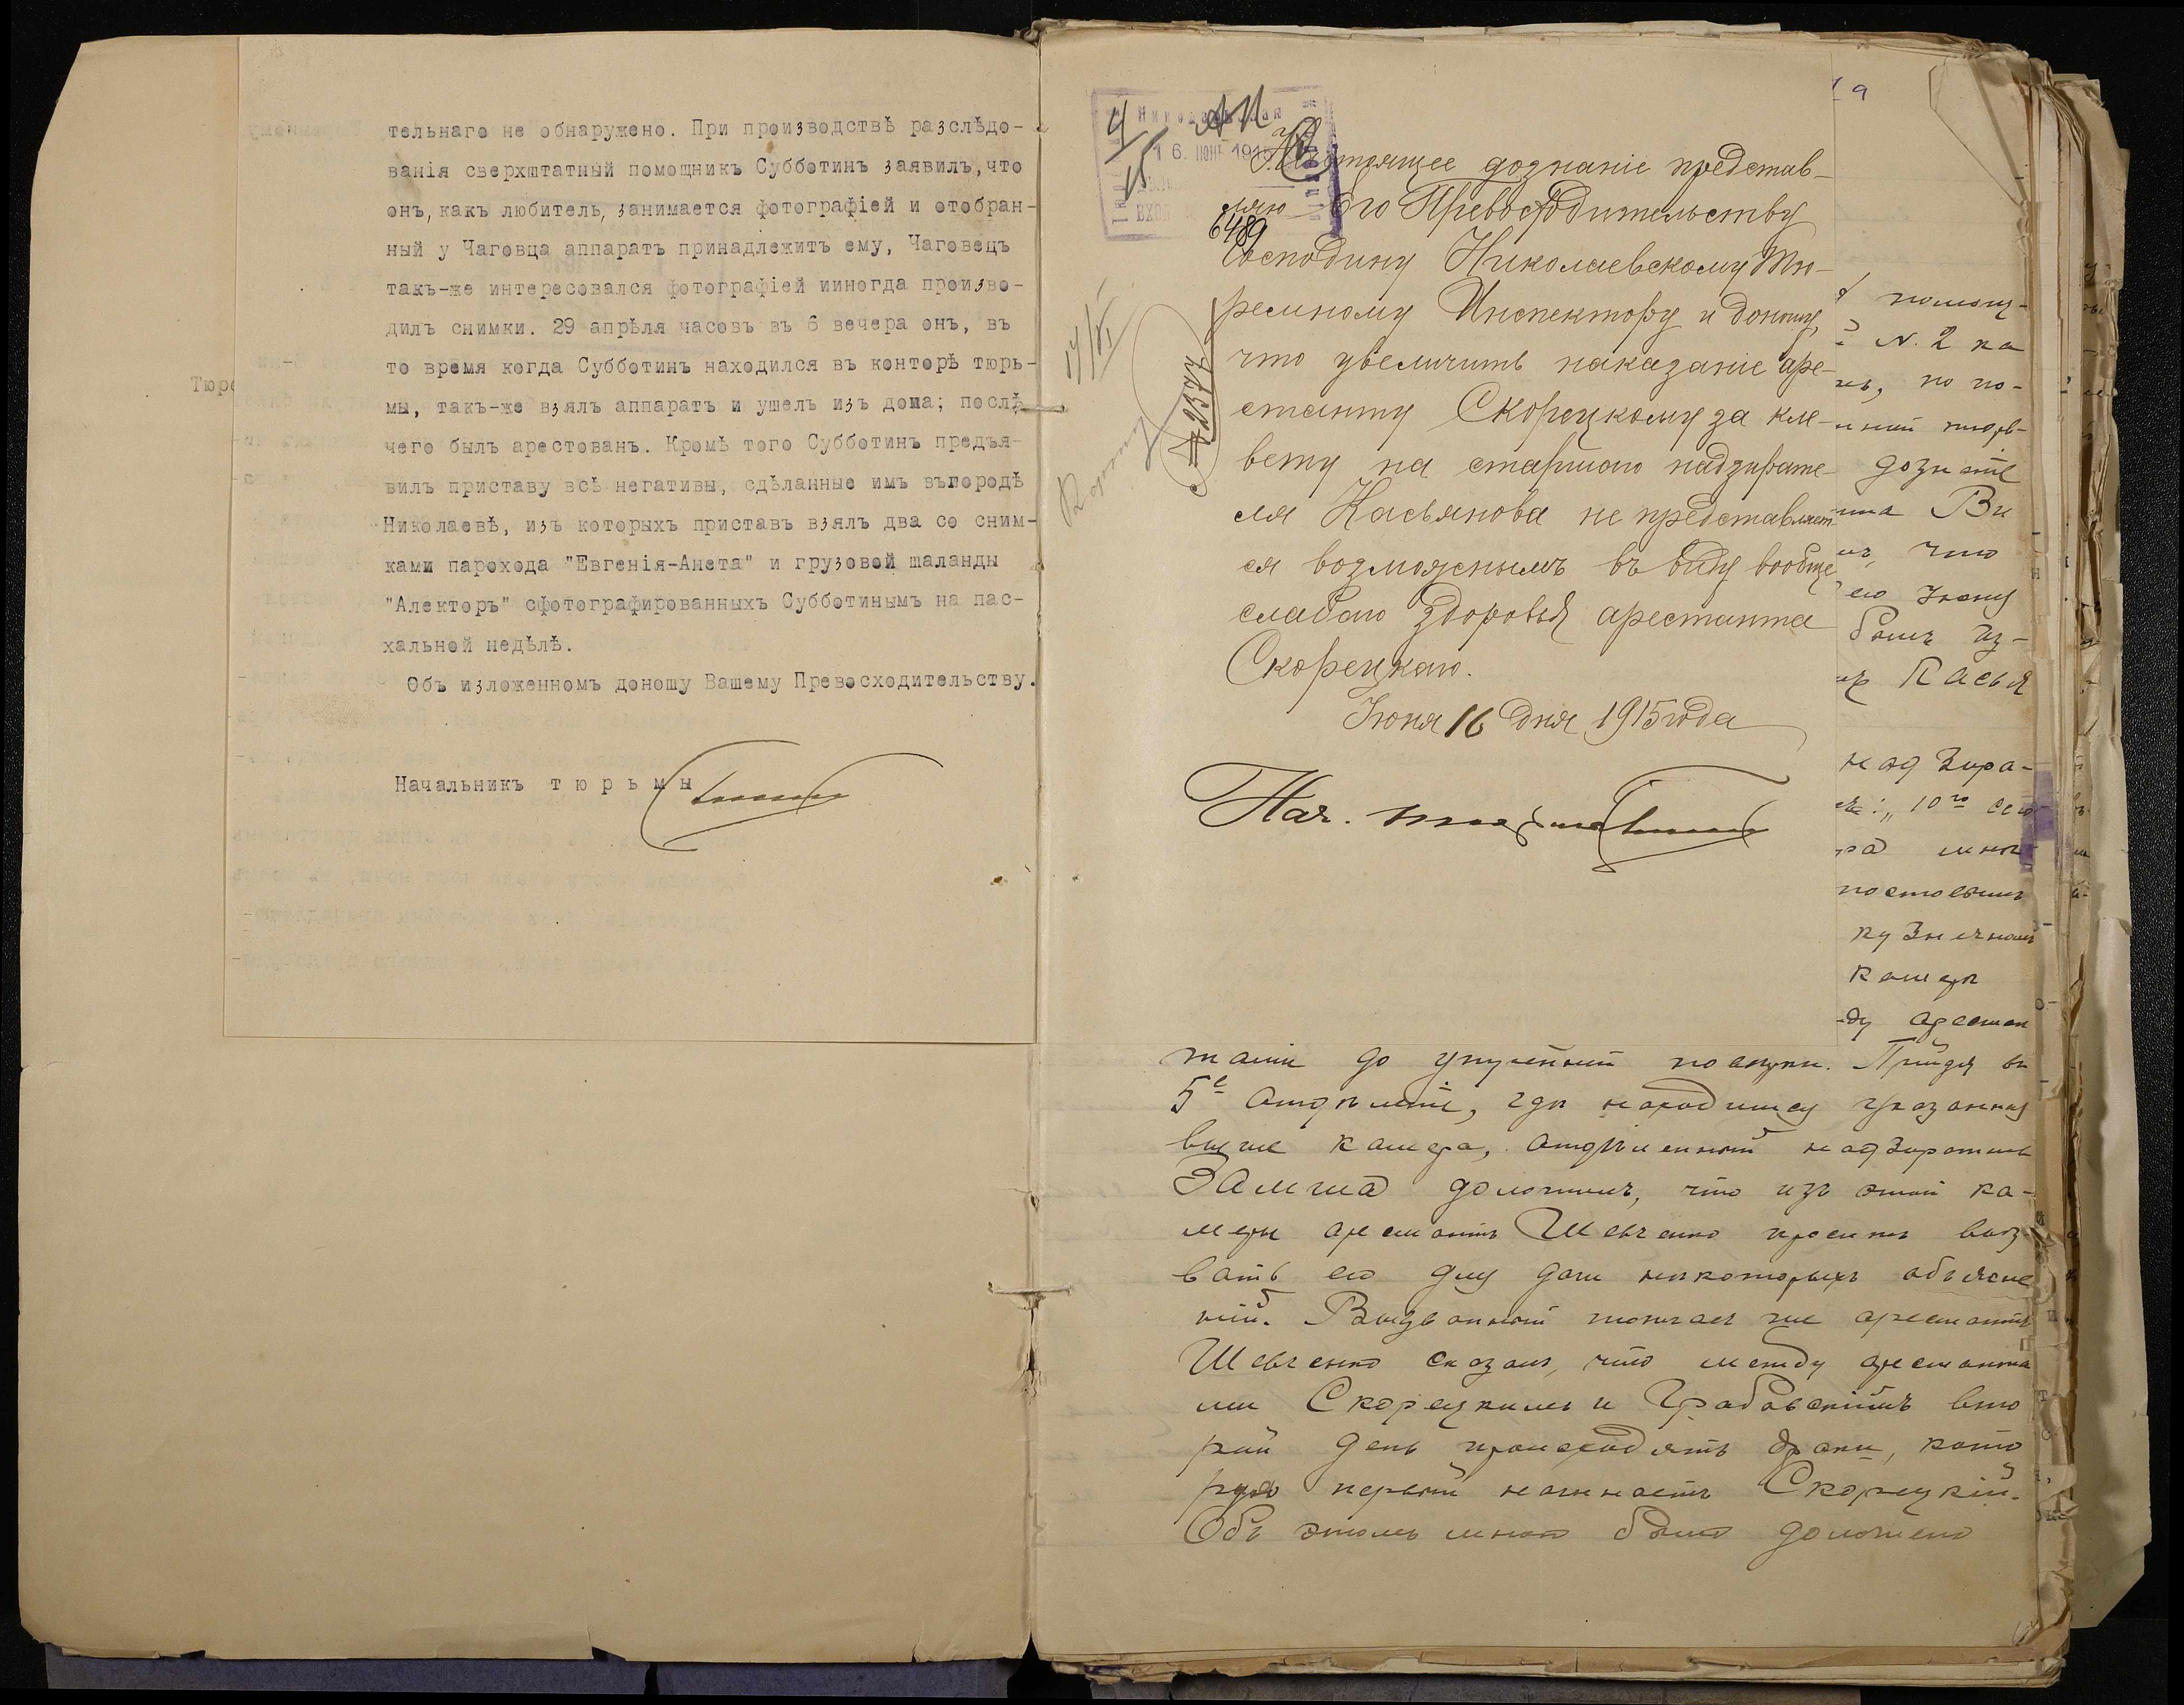 тельнаго не обнаружено. При производствѣ разслѣдо-
ванія сверхштатный помощникъ Субботинъ заявилъ, что
онъ, какъ любитель, занимается фотографіей и отобран-
ный у Чаговца аппаратъ принадлежитъ ему, Чаговецъ
такъ-же интересовался фотографіей ииногда произво-
дилъ снимки. 29 апрѣля часовъ въ 6 вечера онъ, въ
то время когда Субботинъ находился въ конторѣ тюрь-
мы, такъ-же взялъ аппаратъ и ушелъ изъ дома; послѣ
чего былъ арестованъ. Кромѣ того Субботинъ предъя-
вилъ приставу всѣ негативы, сдѣланные имъ въгородѣ
Николаевѣ, изъ которыхъ приставъ взялъ два со сним-
ками парохода "Евгенія-Анета" и грузовой шаланды
"Алекторъ" сфотографированныхъ Субботинымъ на пас-
хальной недѣлѣ.
Объ изложенномъ доношу Вашему Превосходительству.
Начальникъ тюрьмы
Тюре
9
16 ИЮНЯ 1915
6489
17/VI
№ 2377
Настоящее дознаніе представ-
ляю Его Превосходительству
Господину Николаевскому Тю-
ремному Инспектору и доношу,
что увеличить наказаніе аре-
станту Скорецкому за кле-
вету на старшаго надзирате-
ля Касьянова не представляет-
ся возможнымъ въ виду вообще
слабаго здоровья арестанта
Скорецкаго.
Іюня 16 дня 1915 года
Нач. тюрьмы
помощ-
№ 2 ка
нь, по по-
дознаніе
Ви
что
его
былъ из-
Касья
надзира-
10го сего
мною
кузнечномъ
камеры
ду арестан
тами до упущеній поступки. Прийдя въ
5е отдѣленіе, гдѣ находится указанная
выше камера, отдѣленный надзиратель
Замша доложилъ, что изъ этой ка-
меры арестантъ Шевченко проситъ выз-
вать его для дачи нѣкоторыхъ объясне
ній. Вызванный тотчасъ же арестантъ
Шевченко сказалъ, что между арестанта
ми Скорецкимъ и Грабовскимъ вто
рой день происходятъ драки, кото
рую первый начинаетъ Скорецкій.
Объ этомъ мною было доложено